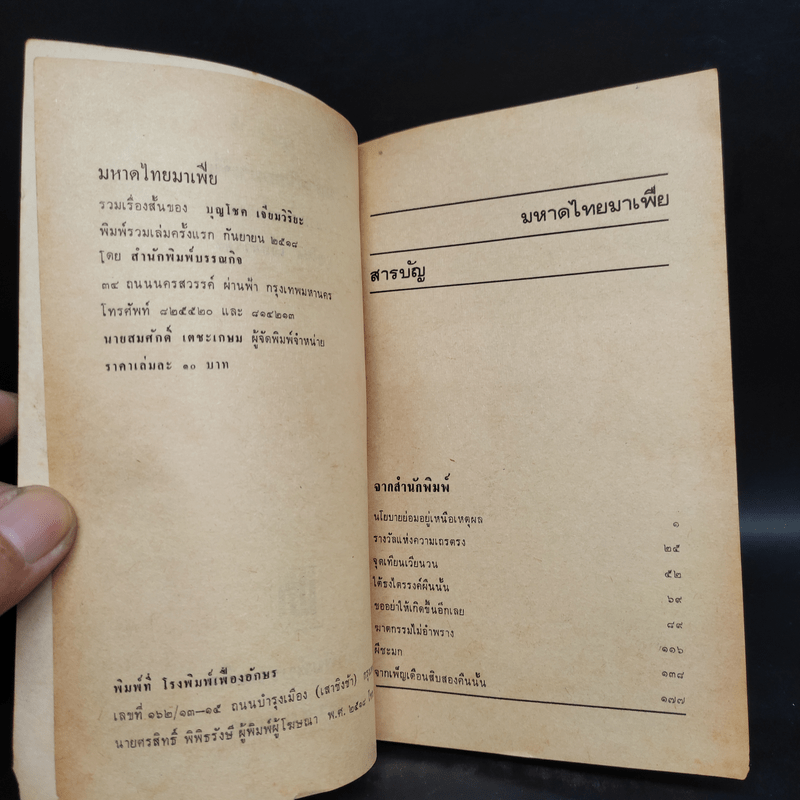 มหาดไทยมาเฟีย
รวมเรื่องสั้นของ บุญโชค เจียมวิริยะ
พิมพ์รวมเล่มครั้งแรก กันยายน ๒๕๑๘
โดย สำนักพิมพ์บรรณกิจ
๓๔ ถนนนครสวรรค์ ผ่านฟ้า กรุงเทพมหานคร
โทรศัพท์ ๘๒๕๕๒๐ และ ๘๑๔๒๑๓
นายสมศักดิ์ เตชะเกษม ผู้จัดพิมพ์จำหน่าย
ราคาเล่มละ ๑๐ บาท
พิมพ์ที่ โรงพิมพ์เฟื่องอักษร
เลขที่ ๑๖๒/๑๓–๑๕ ถนนบำรุงเมือง (เสาชิงช้า)
นายศรสิทธิ์ พิพิธรังษี ผู้พิมพ์ผู้โฆษณา พ.ศ. ๒๕๑๘
มหาดไทยมาเฟีย
สารบัญ
จากสำนักพิมพ์
นโยบายย่อมอยู่เหนือเหตุผล ๑
รางวัลแห่งความเถรตรง ๒๕
จุดเทียนเวียนวน ๕๒
ใต้ธงไตรรงค์ผืนนั้น ๖๙
ขออย่าให้เกิดขึ้นอีกเลย ๘๙
ฆาตกรรมไม่อำพราง ๑๑๖
ผีชะมก ๑๓๘
จากเพ็ญเดือนสิบสองคืนนั้น ๑๗๗